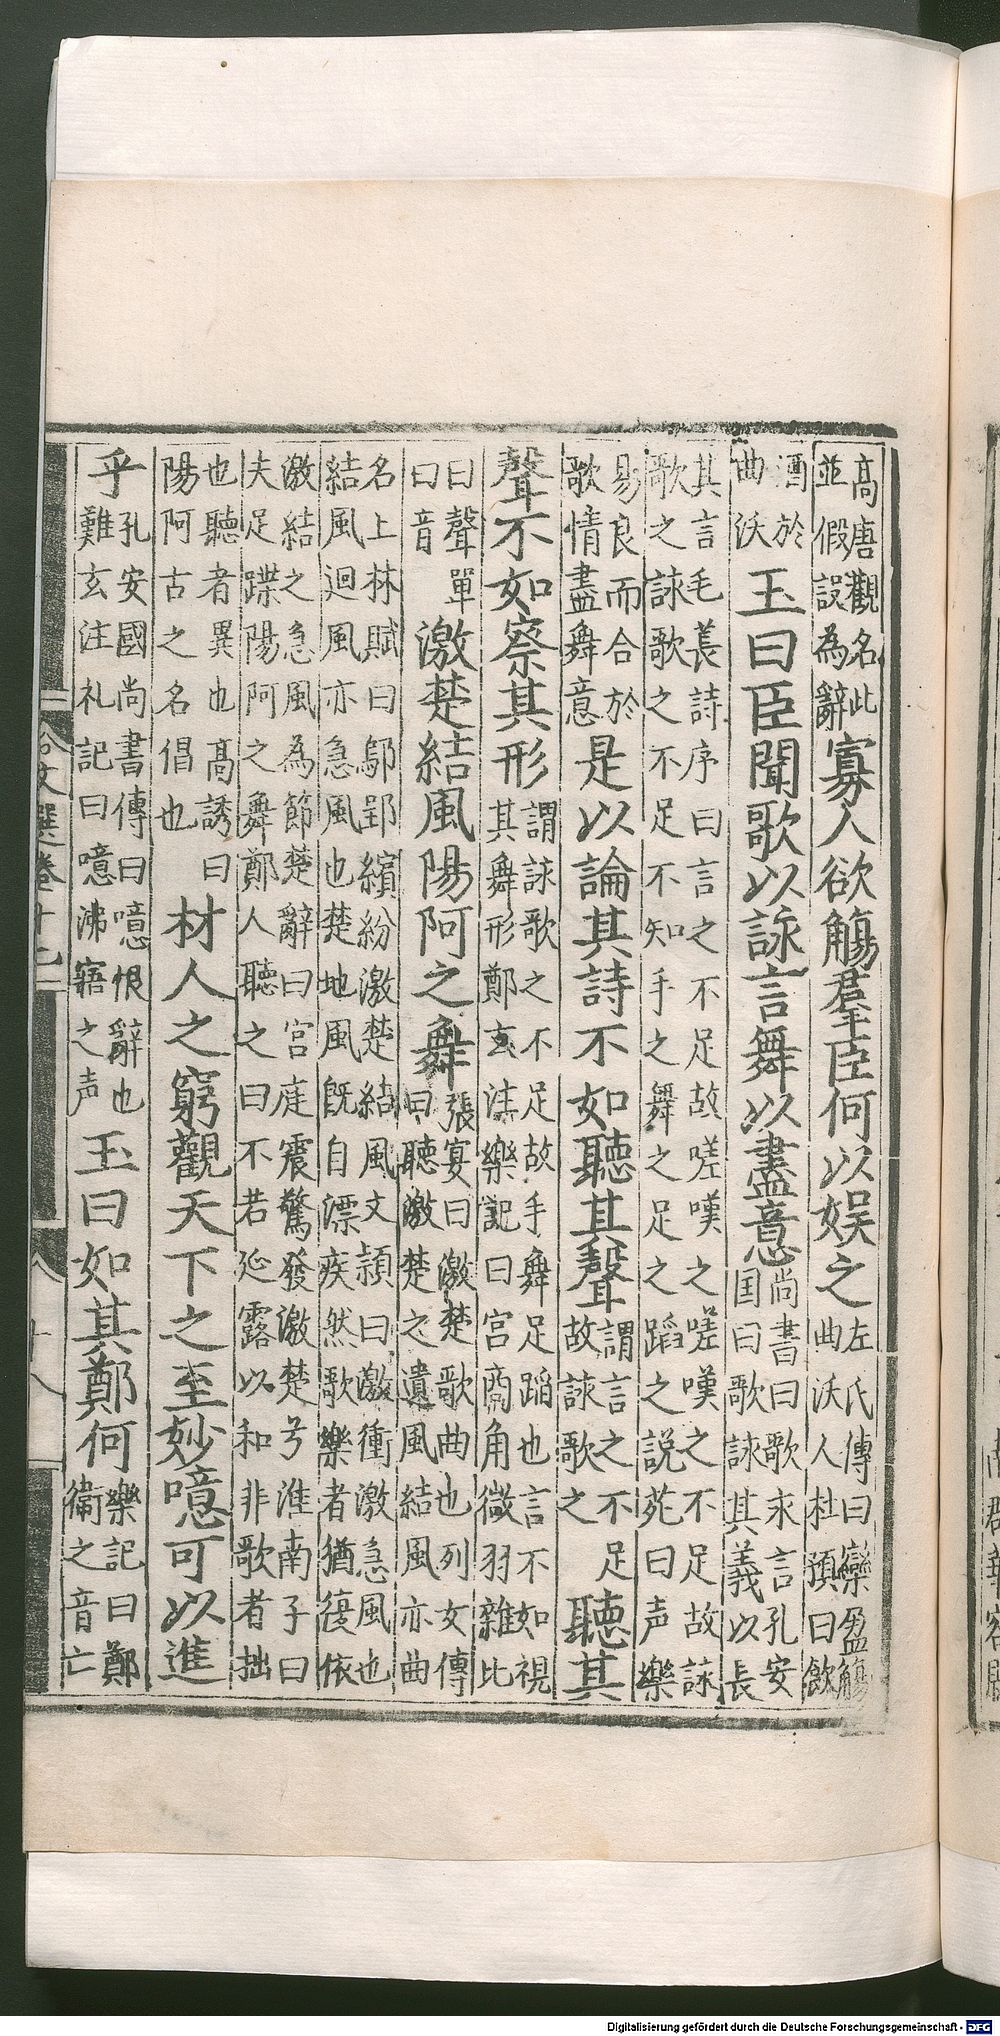 高唐觀名此
並假設為辭
寡人欲觴羣臣何以娛之
左氏傳曰欒盈觴
曲沃人杜預曰飲
酒於
曲沃
玉曰臣聞歌以詠言舞以盡意
尚書曰歌永言孔安
国曰歌詠其義以長
其言毛萇詩序曰言之不足故嗟嘆之嗟嘆之不足故詠
歌之詠歌之不足不知手之舞之足之蹈之說苑曰声樂
易良而合於
歌情盡舞意
是以論其詩不如聽其聲
謂言之不足
故詠歌之
聽其
聲不如察其形
謂詠歌之不足故手舞足蹈也言不如視
其舞形鄭玄注樂記曰宮商角徵羽雜比
曰聲單
曰音
激楚結風陽阿之舞
張宴曰激楚歌曲也列女傳
曰聽激楚之遺風結風亦曲
名上林賦曰鄢郢繽紛激楚結風文頴曰激衝激急風也
結風迴風亦急風也楚地風既自漂疾然歌樂者猶復依
激結之急風為節楚辭曰宮庭震驚發激楚兮淮南子曰
夫足蹀陽阿之舞鄭人聽之曰不若延露以和非歌者拙
也聽者異也高誘曰
陽阿古之名倡也
材人之窮觀天下之至妙噫可以進
乎
孔安國尚書傳曰噫恨辭也
難玄注礼記曰噫沸寤之声
玉曰如其鄭何
樂記曰鄭
衛之音亡
文選卷十七
十八
Digitalisierung gefördert durch die Deutsche Forschungsgemeinschaft - DFG